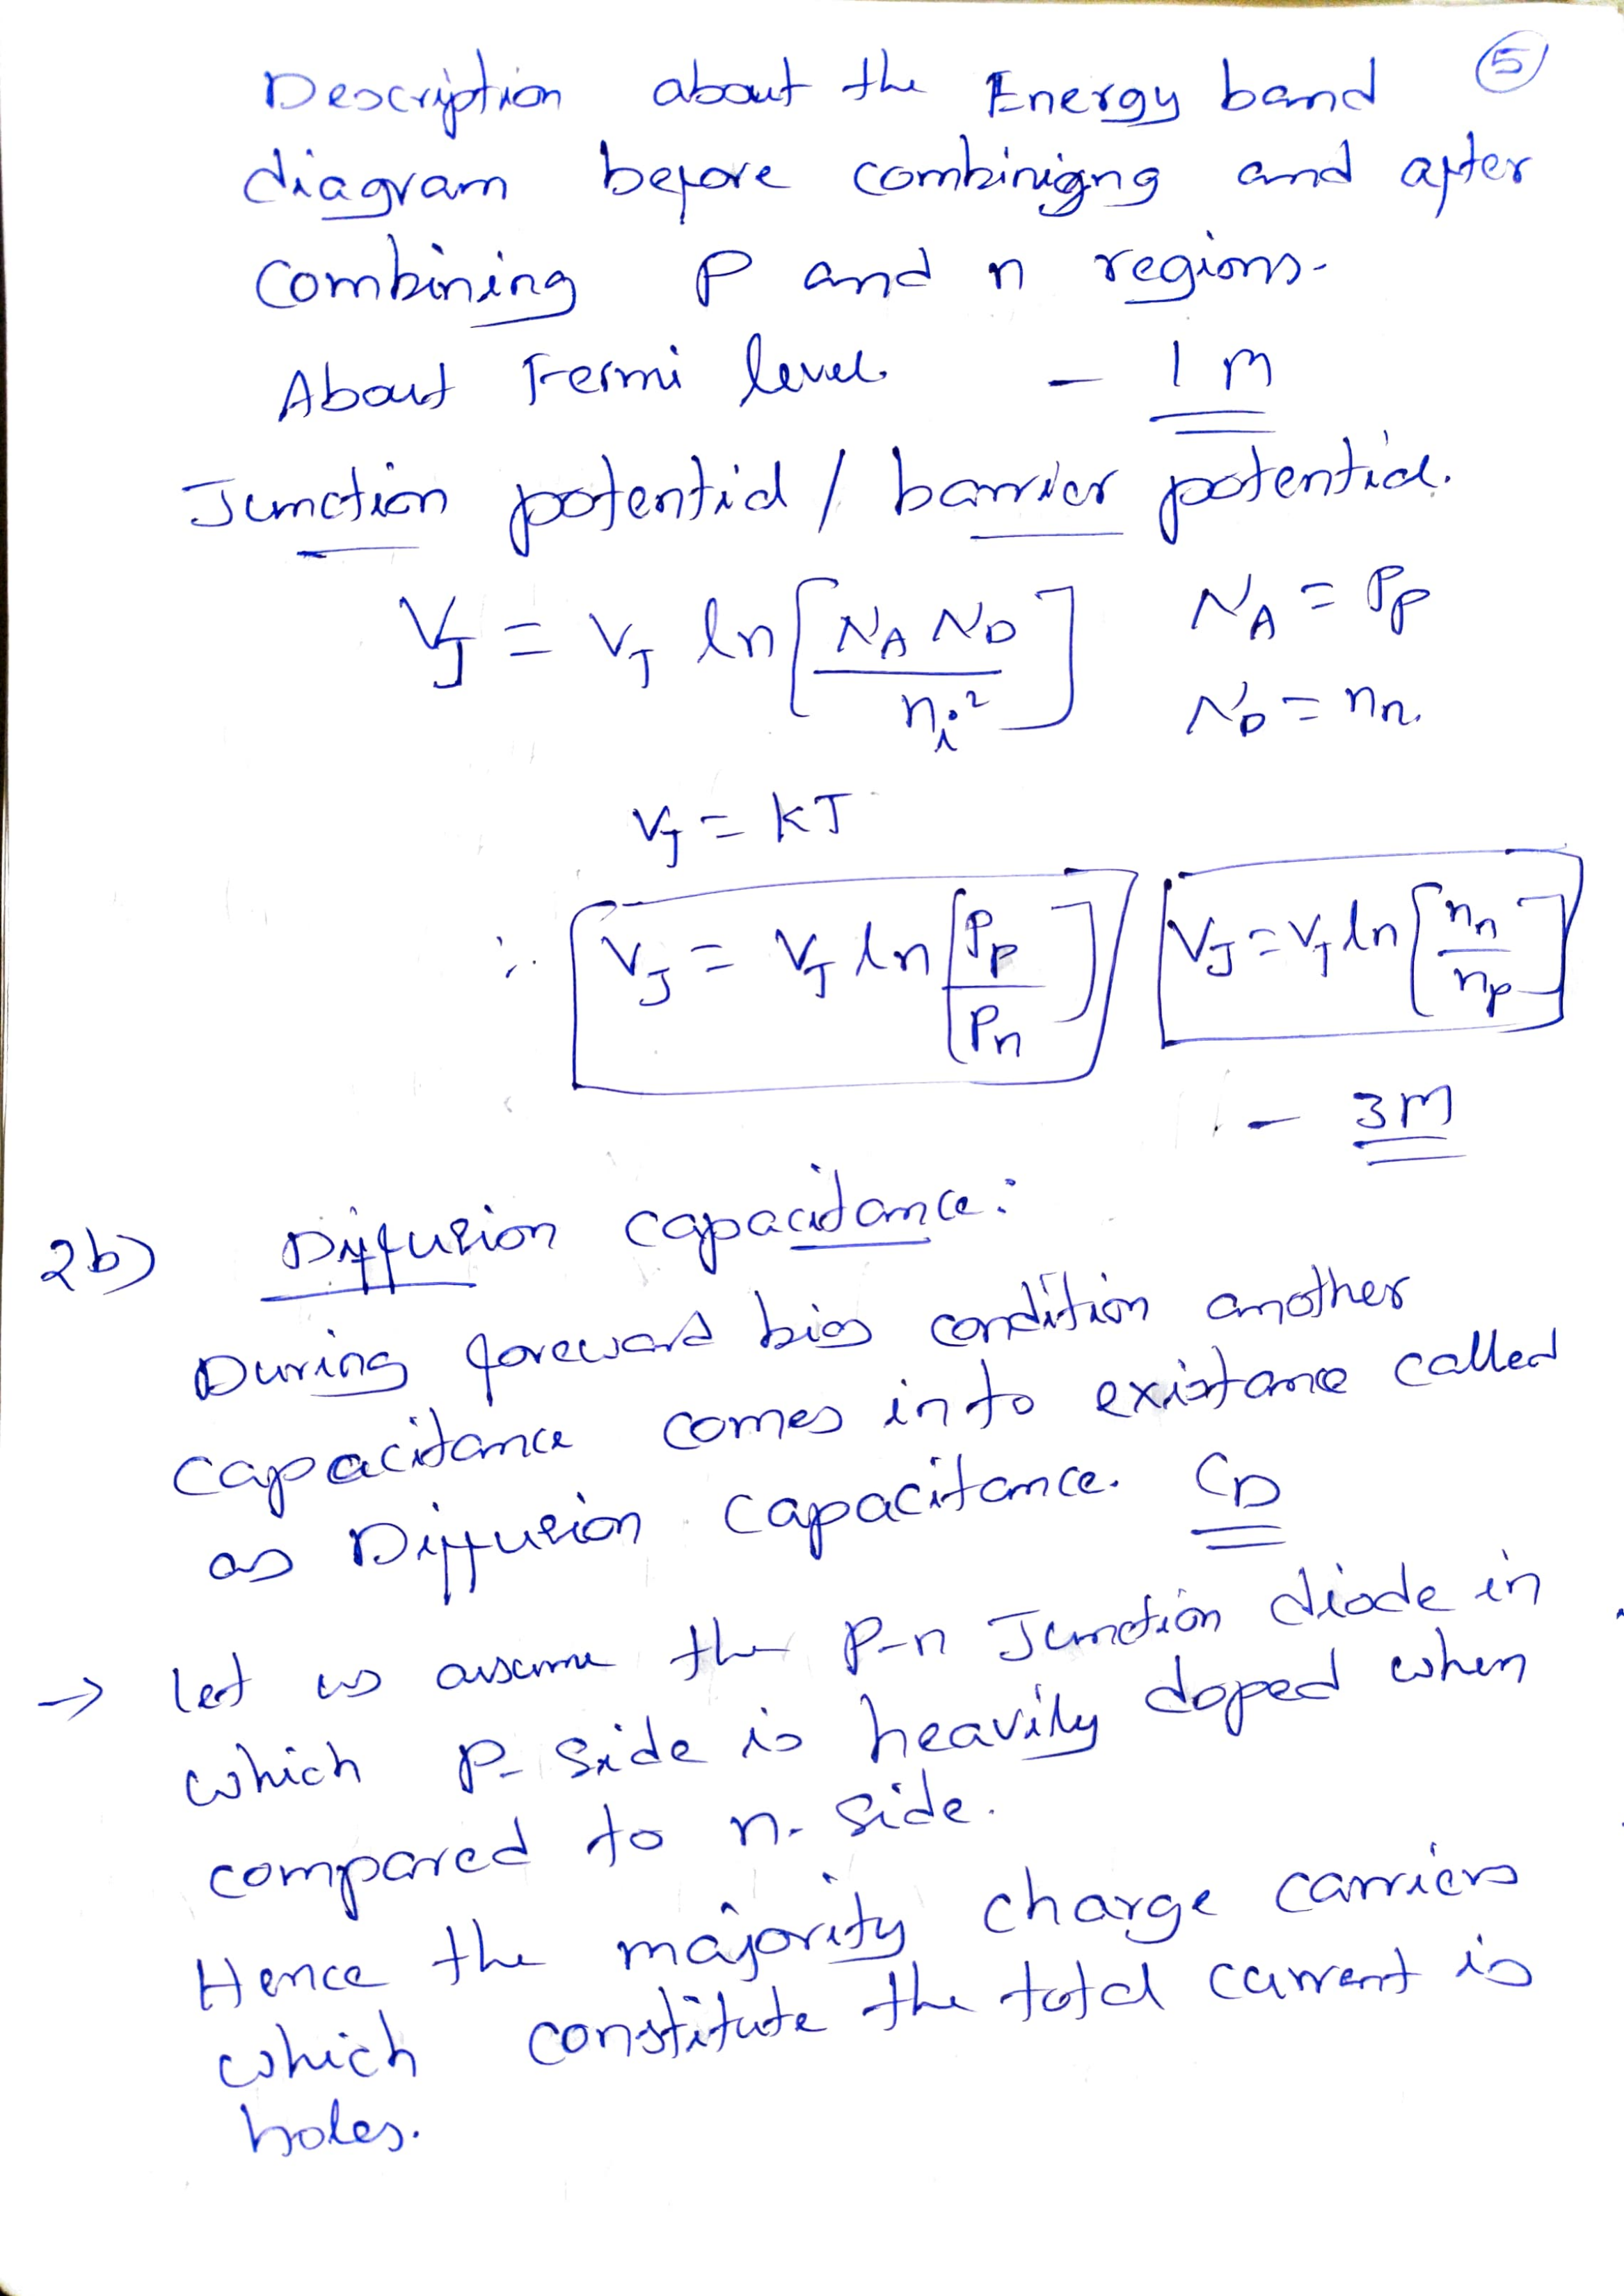 5
Description about the Energy band
diagram before combinigng and after
Combining P and n regions.
About Fermi level. - 1 M
Junction potential / barrier potential.
V_J = V_T ln [N_A N_D / n_i²] N_A = P_P
N_D = n_n.
V_T = kT
∴ [V_J = V_T ln [P_P / P_n]] / [V_J = V_T ln [n_n / n_p]]
- 3M
2b) Diffusion capacitance:
During foreward bias condition another
capacitance comes into existance called
as Diffusion capacitance. C_D
→ let us assume the p-n Junction diode in
which p-side is heavily doped when
compared to n-side.
Hence the majority charge carriers
which constitute the total current is
holes.